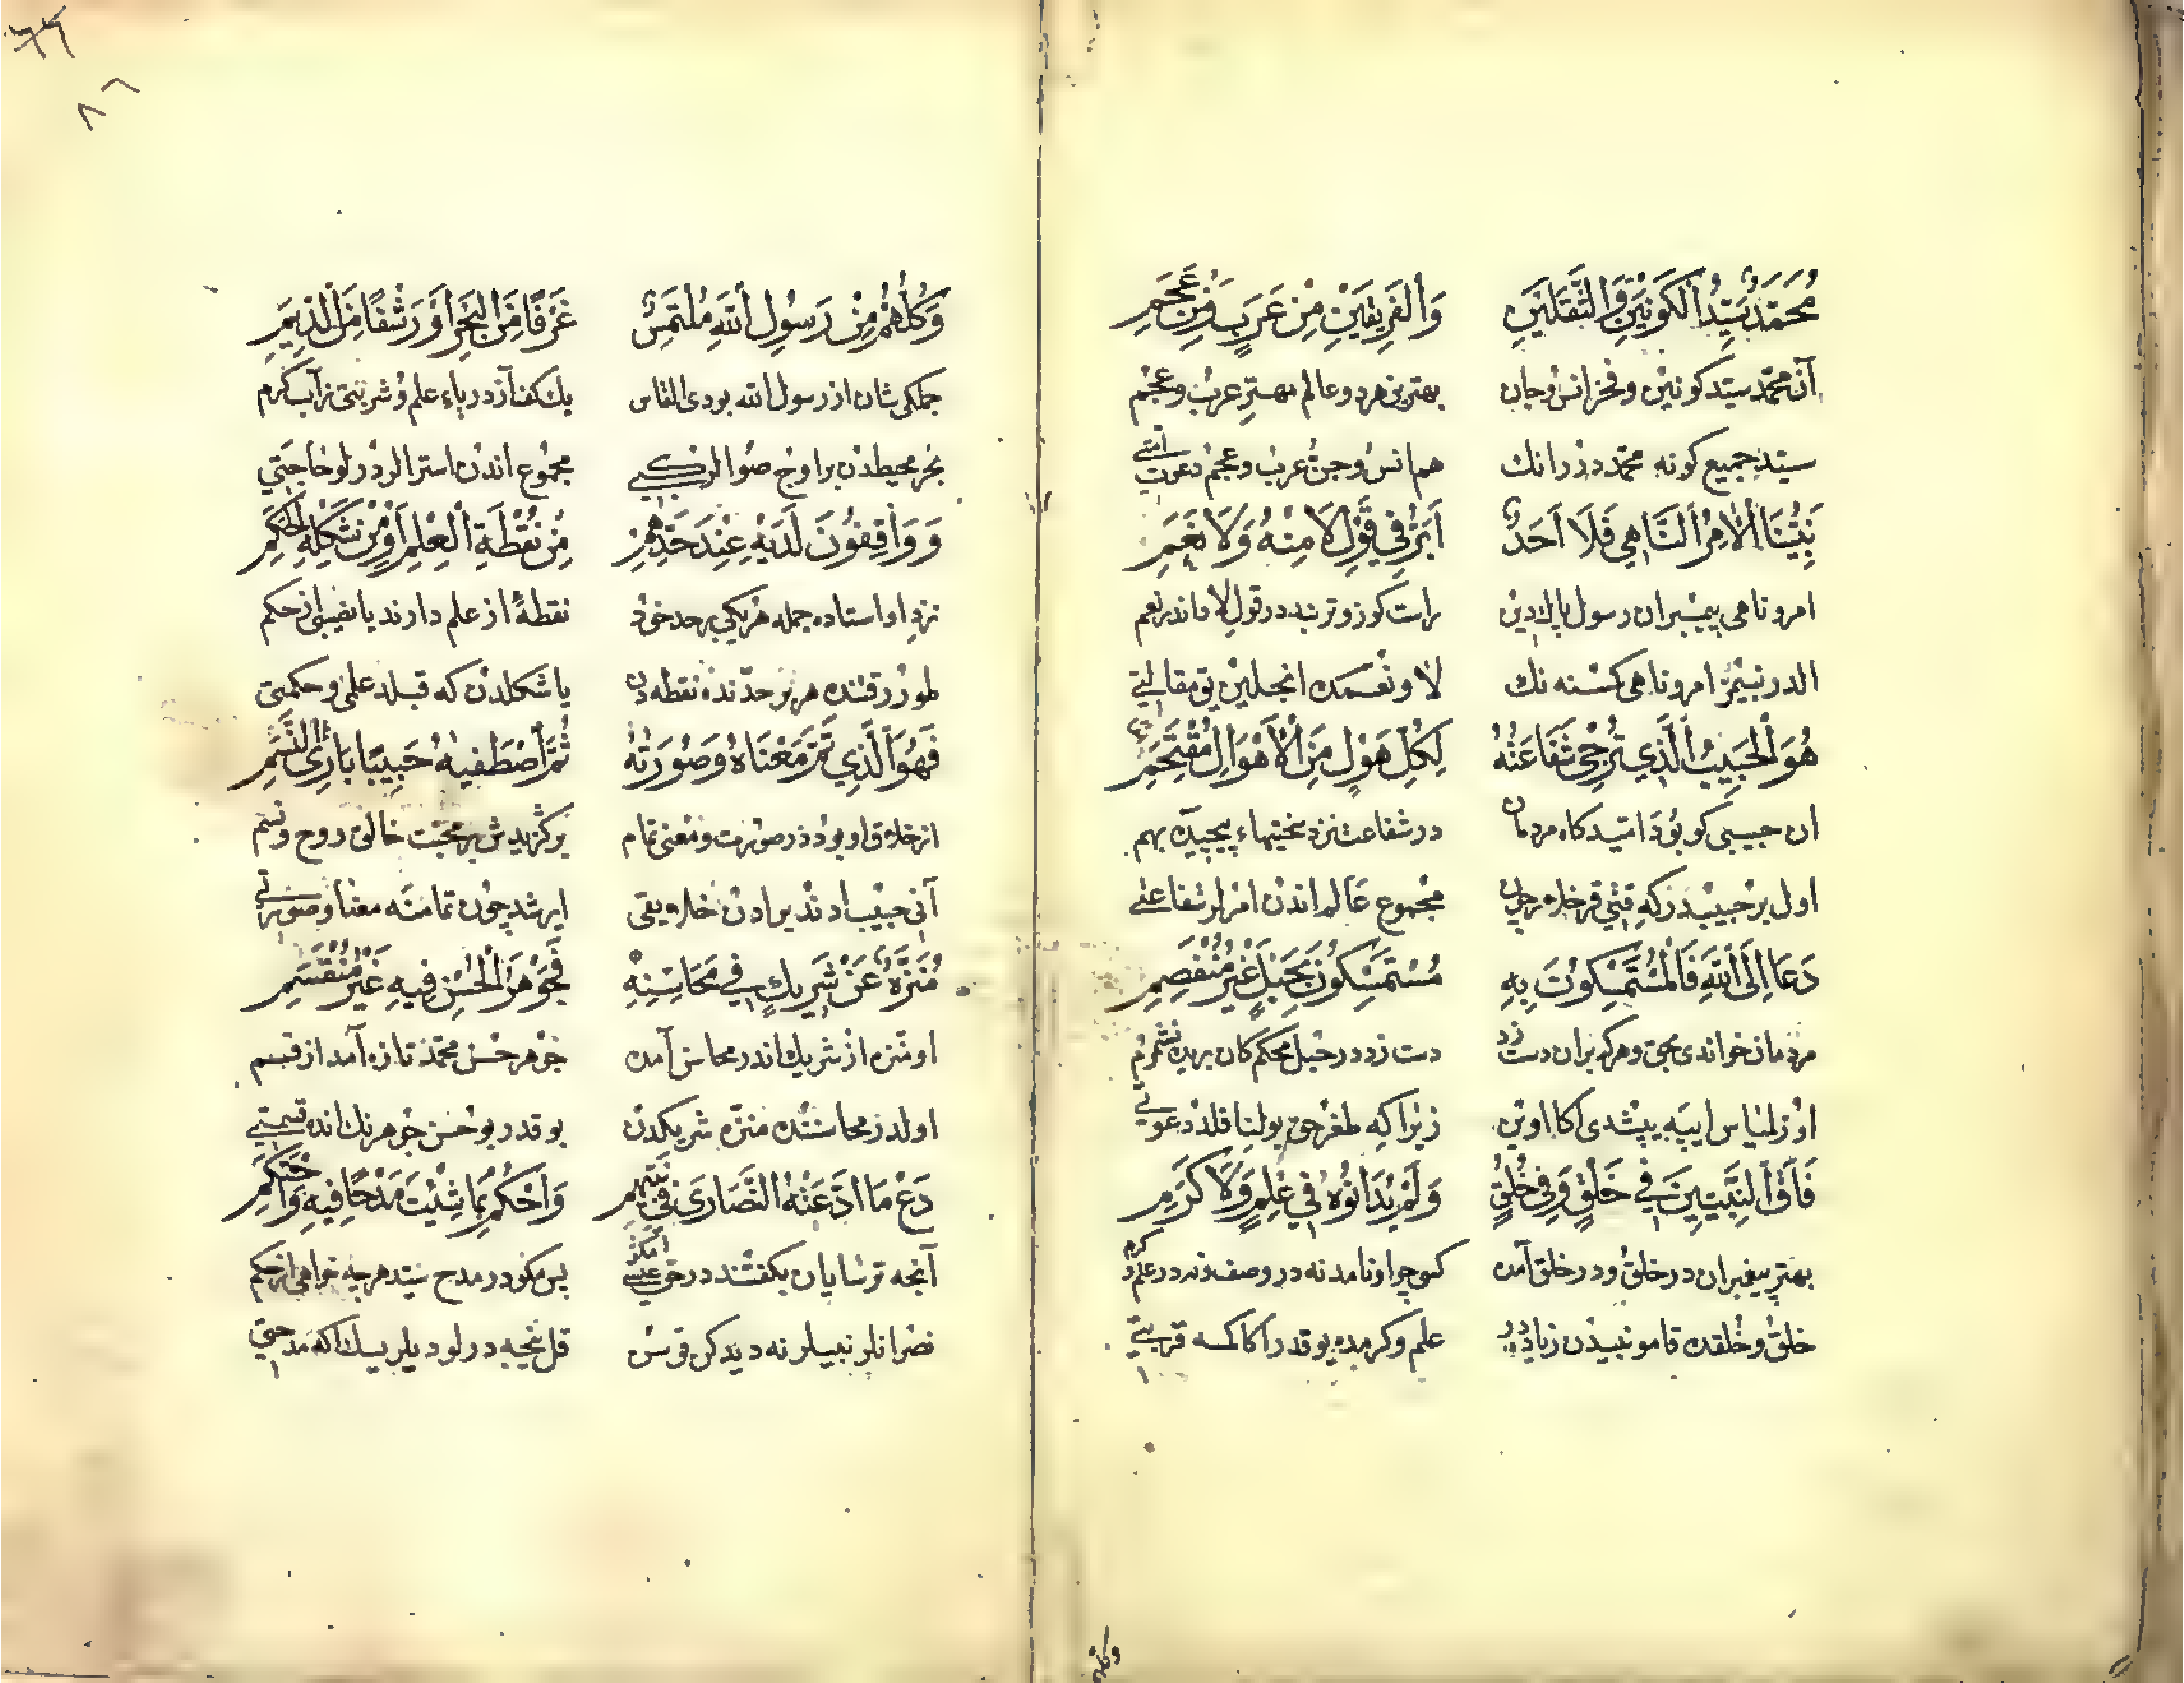 مُحَمَّدٌ سَيِّدُ الْكَوْنَيْنِ وَالثَّقَلَيْنِ وَالْفَرِيقَيْنِ مِنْ عَرَبٍ وَمِنْ عَجَمِ
آن محمّد سيّد كونين و فخر انس و جان بهترين هر دو عالم مهتر عرب و عجم
سيّد جميع كونه محمّد درر انك هم انس و جن عرب و عجم دعوت امتى
نَبِيُّنَا الْآمِرُ النَّاهِي فَلَا أَحَدٌ أَبَرُّ فِي قَوْلِ لَا مِنْهُ وَلَا نَعَمِ
امر و ناهى پيمبران رسول پاك دين راست كوز و تر نبد در قول لا و اندر نعم
الدر نبيمز امر و ناهى كسنه نك لا و نعمده انجلين يق مقالتى
هُوَ الْحَبِيبُ الَّذِي تُرْجَى شَفَاعَتُهُ لِكُلِّ هَوْلٍ مِنَ الْأَهْوَالِ مُقْتَحَمِ
ان حبيبى كو بود اميد كاه مردمان در شفاعت نزد سختيهاء پيچيده بهم
اول بر حبيبدر كه مجموع عالم اندن امرلر شفاعتى
دَعَا إِلَى اللهِ فَالْمُسْتَمْسِكُونَ بِهِ مُسْتَمْسِكُونَ بِحَبْلٍ غَيْرِ مُنْفَصِمِ
مردمان خواندى بحق و هركه بران دست زد دست زد در حبل محكم كان بريده نشمرم
زيرا كه بولنا قلدى دعوتى
فَاقَ النَّبِيِّينَ فِي خَلْقٍ وَفِي خُلُقٍ وَلَمْ يُدَانُوهُ فِي عِلْمٍ وَلَا كَرَمِ
بهتر پيغبران در خلق و در خلق آمده كس چو او نامد نه در وصف و نه در علم و كرم
خلق و خلقده قامو نبيدن زياددر علم و كرمده يوقدر اكا كمسه قربتى
وكلهم
٨٦
وَكُلُّهُمْ مِنْ رَسُولِ اللهِ مُلْتَمِسٌ غَرْفًا مِنَ الْبَحْرِ أَوْ رَشْفًا مِنَ الدِّيَمِ
جملكى شان از رسول الله بودى التماس يك كف از درياء علم و شربتى ز آب كرم
بحر محيطدن بر اوج صو الر كبى مجموع اندن استرالردر لو حاجتى
وَوَاقِفُونَ لَدَيْهِ عِنْدَ حَدِّهِمِ مِنْ نُقْطَةِ الْعِلْمِ أَوْ مِنْ شَكْلَةِ الْحِكَمِ
نزد او استاده جمله هر يكى بر حد خود نقطهٔ از علم دارند يا نصيبى از حكم
طورر قتنده هر بر حدنده نقطه دن يا شكلدن كه قيله علمى و حكمتى
فَهُوَ الَّذِي تَمَّ مَعْنَاهُ وَصُورَتُهُ ثُمَّ اصْطَفَيهُ حَبِيبًا بَارِئُ النَّسَمِ
از خلايق او بود در صورت و معنى تمام بركزيدش بر محبت خالق روح و نسم
آنى حبيب ادندى يرادن خلايقى ايرشدى چون تمامنه معنا و صورتى
مُنَزَّهٌ عَنْ شَرِيكٍ فِي مَحَاسِنِهِ فَجَوْهَرُ الْحُسْنِ فِيهِ غَيْرُ مُنْقَسِمِ
او منزه از شريك اندر محاسن آمده جوهر حسن محمّد تازه آمد از قسم
اولدر محاسننده منزه شريكدن يوقدر بو حسن جوهرنك انده قسمتى
دَعْ مَا ادَّعَتْهُ النَّصَارَى فِي نَبِيِّهِمِ وَاحْكُمْ بِمَا شِئْتَ مَدْحًا فِيهِ وَاحْتَكِمِ
آنچه ترسايان بكفتند در حق عيسى مكو پس بكو در مدح سيد هر چه خواهى از حكم
نصرانلر نبيلرنه ديدكن قوسن